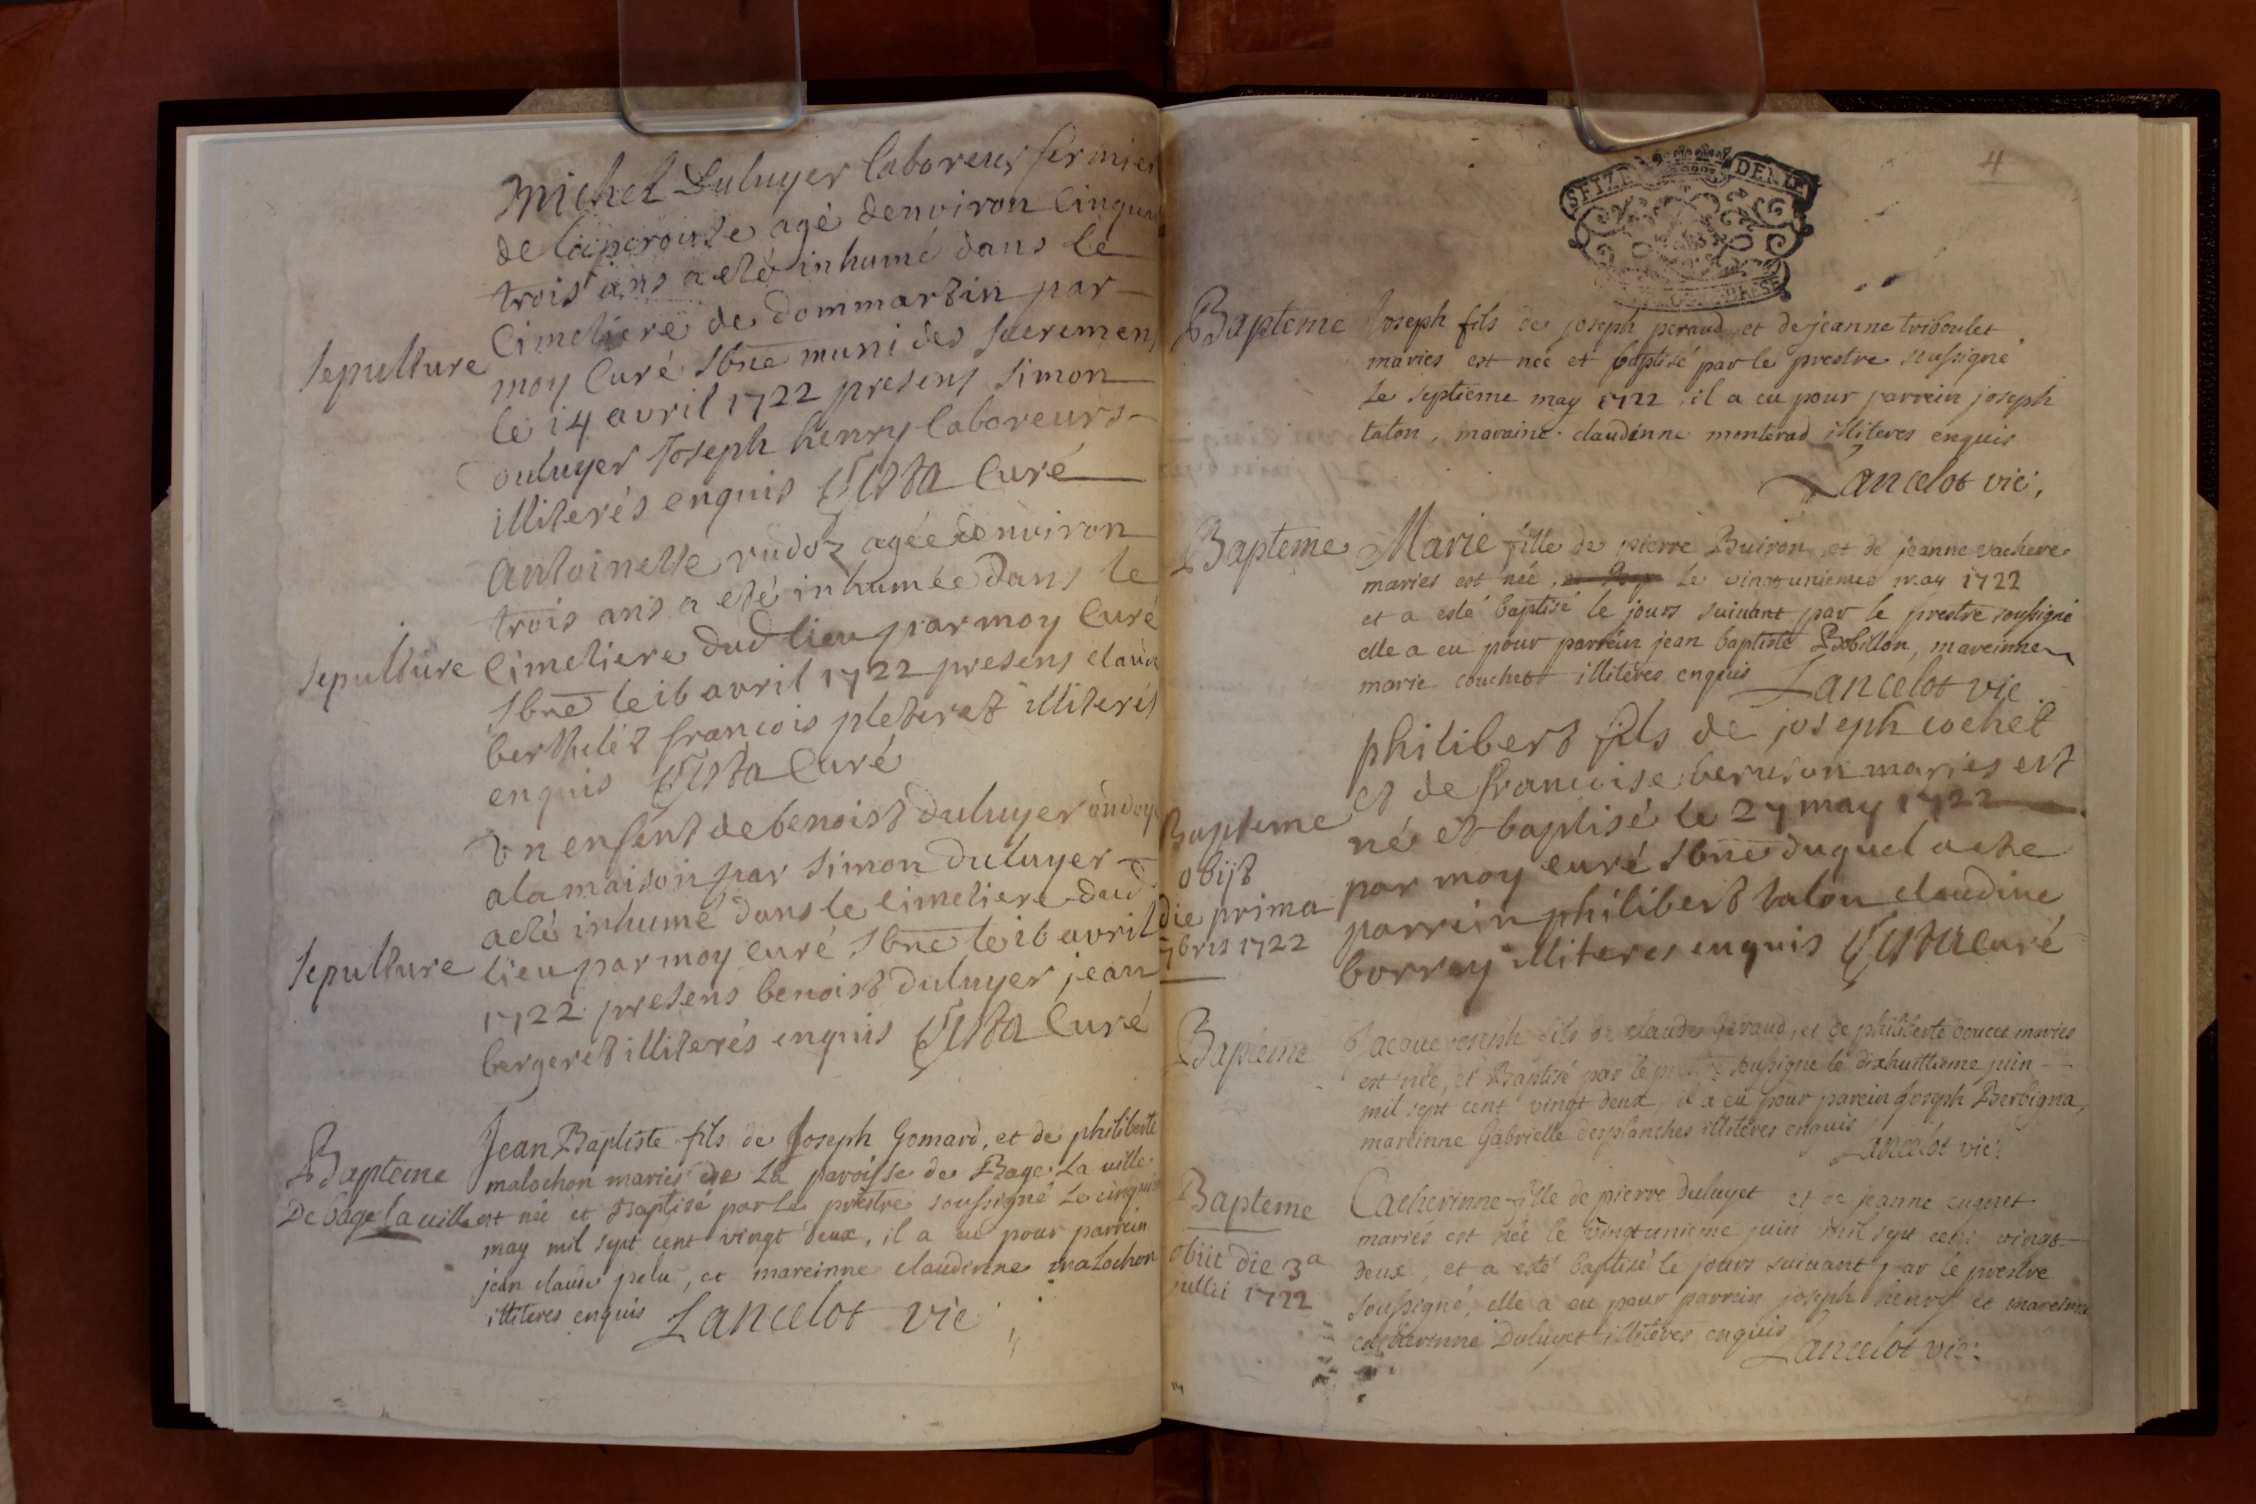 Michel Duluyer laboreur fermier
de laperouse agé denviron Cinqua
trois ans a eté inhumé dans le
Cimetiere de dommartin par
Sepulture
moy Curé sbne muni des sacremens
le 14 avril 1722 presens simon
duluyer Joseph henry laboreurs
illiterés enquis Curé
Antoinette rudoz agée denviron
trois ans a eté inhumée dans le
Sepulture
Cimetiere dud lieu par moy Curé
sbne le 16 avril 1722 presens claud
berthelet francois pleteret illiterés
enquis Curé
un enfent de benoist duluyer ondoyé
a la maison par simon duluyer
a eté inhumé dans le Cimetiere dud
Sepulture
lieu par moy curé sbne le 16 avril
1722 presens benoist duluyer jean
bergeret illiterés enquis Curé
Bapteme
De bage la ville
Jean Baptiste fils de Joseph Gomard, et de philiberte
malochon mariés de la paroisse de Bage la ville
est née et Baptisé par le prestre soussigné le cinqui
may mil sept cent vingt deux, il a eu pour parrein
jean claude pelu, et mareinne claudinne malochon
illiteres enquis Lancelot vic
4
SEIZE DEN LE
Bapteme
Joseph fils de joseph peraud et de jeanne triboulet
maries est née et baptisé par le prestre soussigné
Le septieme may 1722 il a eu pour parrein joseph
talon, maraine claudinne monterad illiteres enquis
Lancelot vic.
Bapteme
Marie fille de pierre Buiron et de jeanne vachere
maries est née le vingtunieme may 1722
et a esté baptisé le jours suivant par le prestre soussigné
elle a eu pour parrein jean baptiste Robillon, mareinne
marie couchet illiteres enquis Lancelot vic
Bapteme
obijt
die prima
7bris 1722
philibert fils de joseph cochet
et de francoise maries est
né et baptisé le 27 may 1722
par moy curé sbne duquel a ete
parrein philibert talon claudine
borray illiteres enquis curé
Bapteme
Jacque joseph fils de claude Geraud, et de philiberte doucet maries
est née, et Baptisé par le prestre soussigné le dixhuittieme juin
mil sept cent vingt deux, il a eu pour parein Joseph Berbigna,
mareinne Gabrielle desplanches illiteres enquis
Lancelot vic.
Bapteme
obiit die 3a
jullii 1722
Catherinne fille de pierre duluyet et de jeanne
mariés est née le vingtunieme juin mil sept cent vingt
deux, et a esté baptisé le jours suivant par le prestre
soussigné, elle a eu pour parrein joseph henry et mareinne
catherinne Duluyet illiteres enquis Lancelot vic.